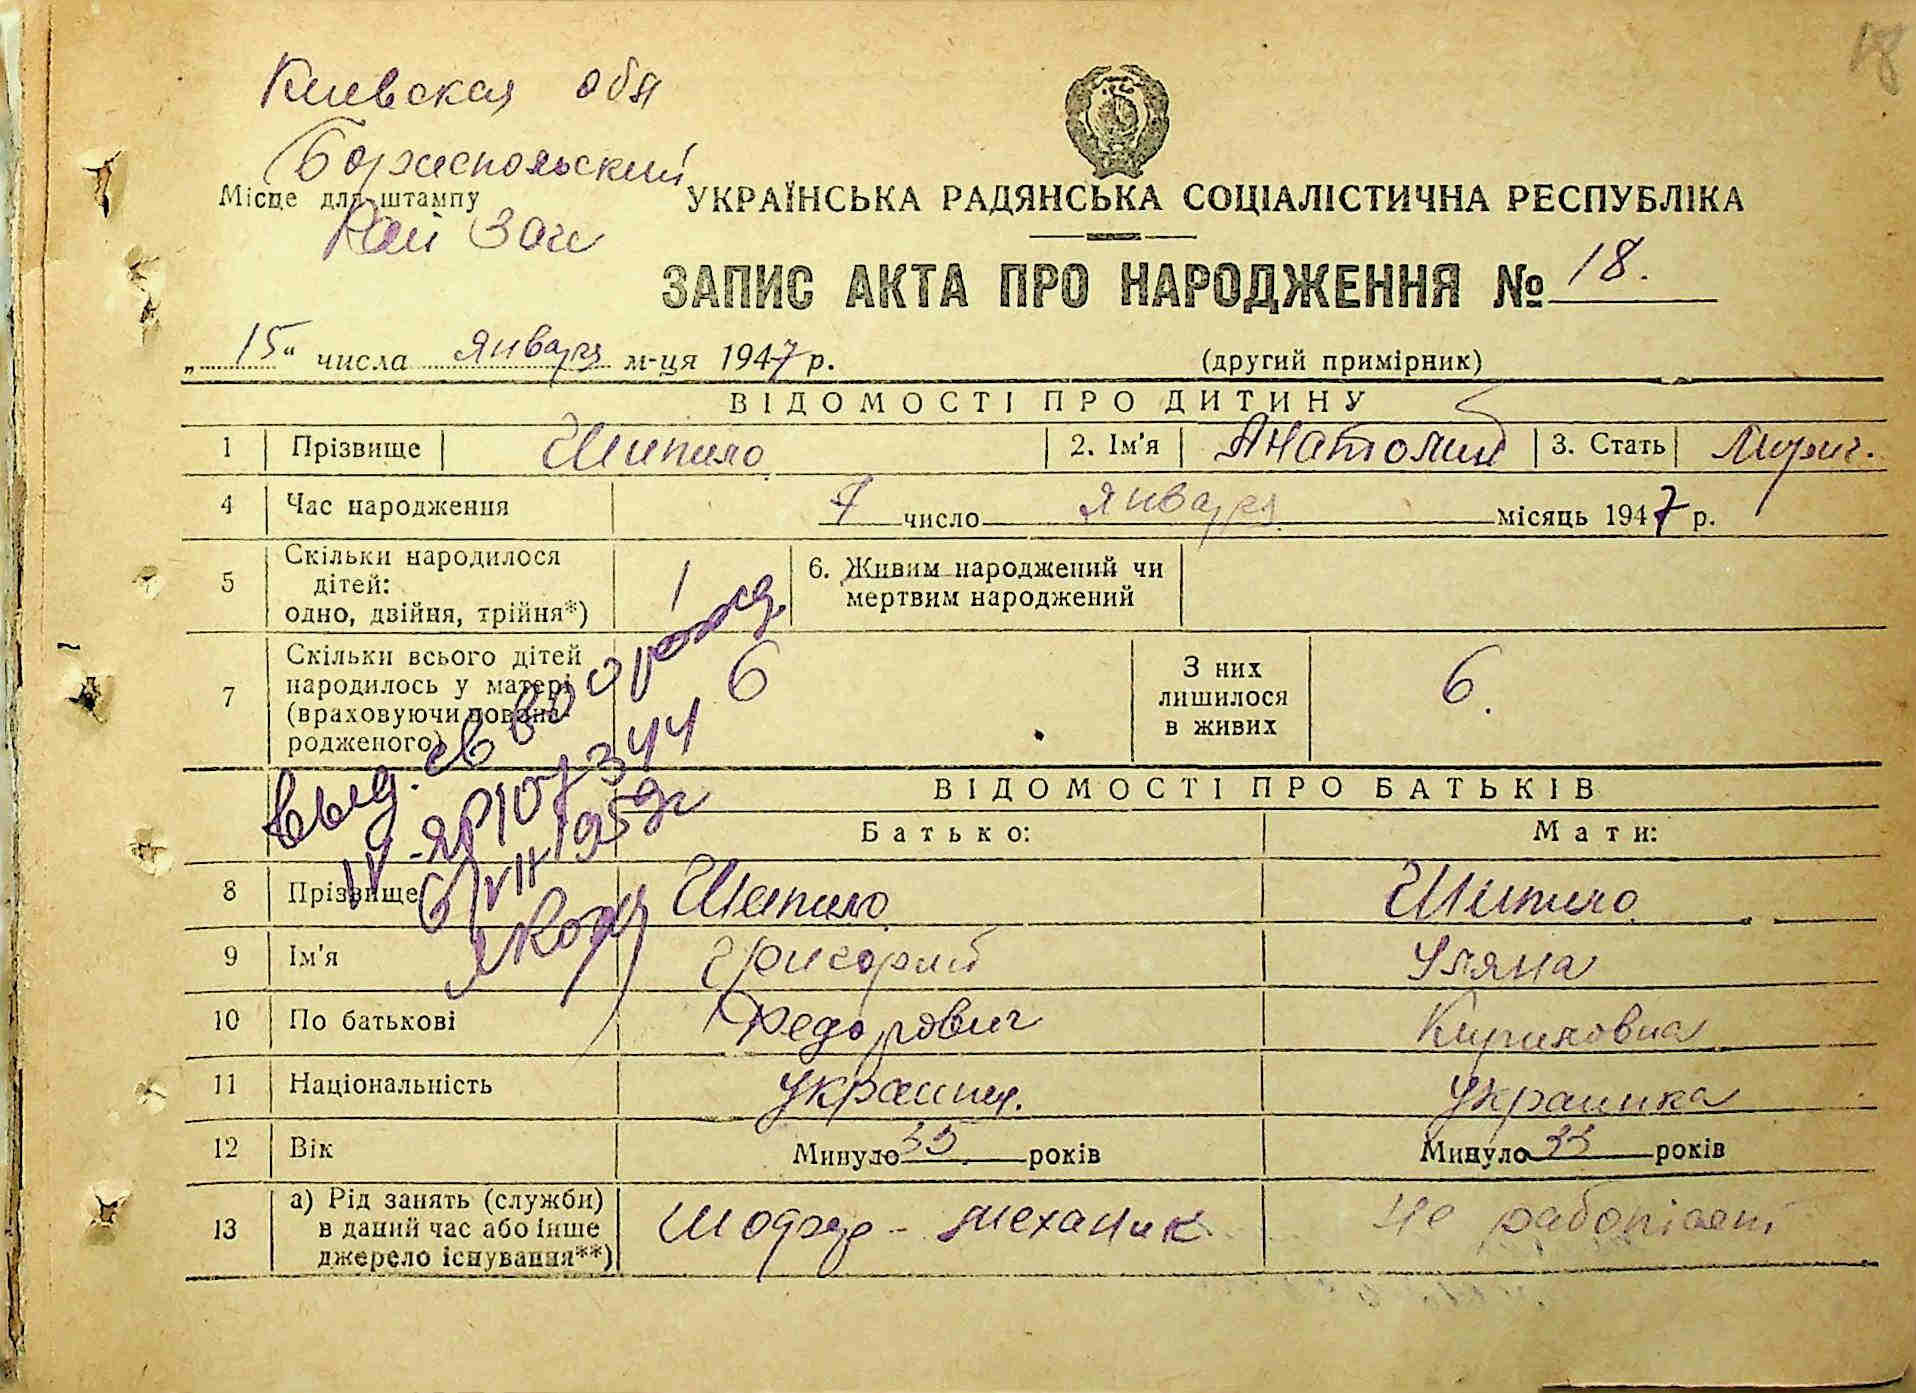 18
Киевская обл
Бориспольский
Місце для штампу
Рай Загс
УКРАЇНСЬКА РАДЯНСЬКА СОЦІАЛІСТИЧНА РЕСПУБЛІКА
ЗАПИС АКТА ПРО НАРОДЖЕННЯ № 18.
„15“ числа января м-ця 1947 р.
(другий примірник)
ВІДОМОСТІ ПРО ДИТИНУ
1 Прізвище Шипило 2. Ім'я Анатолий 3. Стать
4 Час народження 7 число января місяць 1947 р.
5 Скільки народилося дітей: одно, двійня, трійня*) 1 6. Живим народжений чи мертвим народжений
7 Скільки всього дітей народилось у матері (враховуючи новонародженого) 6 З них лишилося в живих 6.
выд. св во о рожд.
6/VII 1959г
ВІДОМОСТІ ПРО БАТЬКІВ
Батько: Мати:
8 Прізвище Шипило Шипило
9 Ім'я Григорий Уляна
10 По батькові Федорович Кириловна
11 Національність украинец. украинка
12 Вік Минуло 35 років Минуло 33 років
13 а) Рід занять (служби) в даний час або інше джерело існування**) Шофер - механик не работает